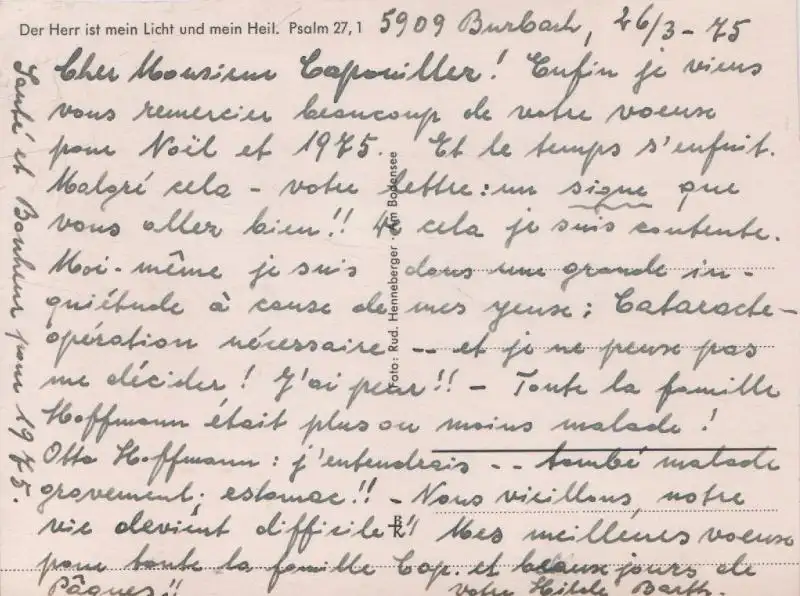 Der Herr ist mein Licht und mein Heil. Psalm 27, 1
5909 Burbach, 26/3 - 75
Cher Monsieur Capouillez! Enfin je viens
vous remercier beaucoup de votre voeuxe
pour Noël et 1975. Et le temps s'enfuit.
Malgré cela - votre lettre: un signe que
vous aller bien!! De cela je suis contente.
Moi-même je suis dans une grande in-
quiétude à cause de mes yeuxe; Cataracte-
opération nécessaire -- et je ne peuxe pas
me décider! J'ai peur!! - Toute la famille
Hoffmann était plus ou moins malade!
Otto Hoffmann: j'entendrais -- tombé malade
gravement; estomac!! - Nous vieillons, notre
vie devient difficile!! Mes meilleures voeuxe
pour toute la famille Cap. et beauxe jours de
Pâques!! votre Hilde Barth.
Santé et Bonheur pour 1975.
Foto: Rud. Henneberger · Am Bodensee